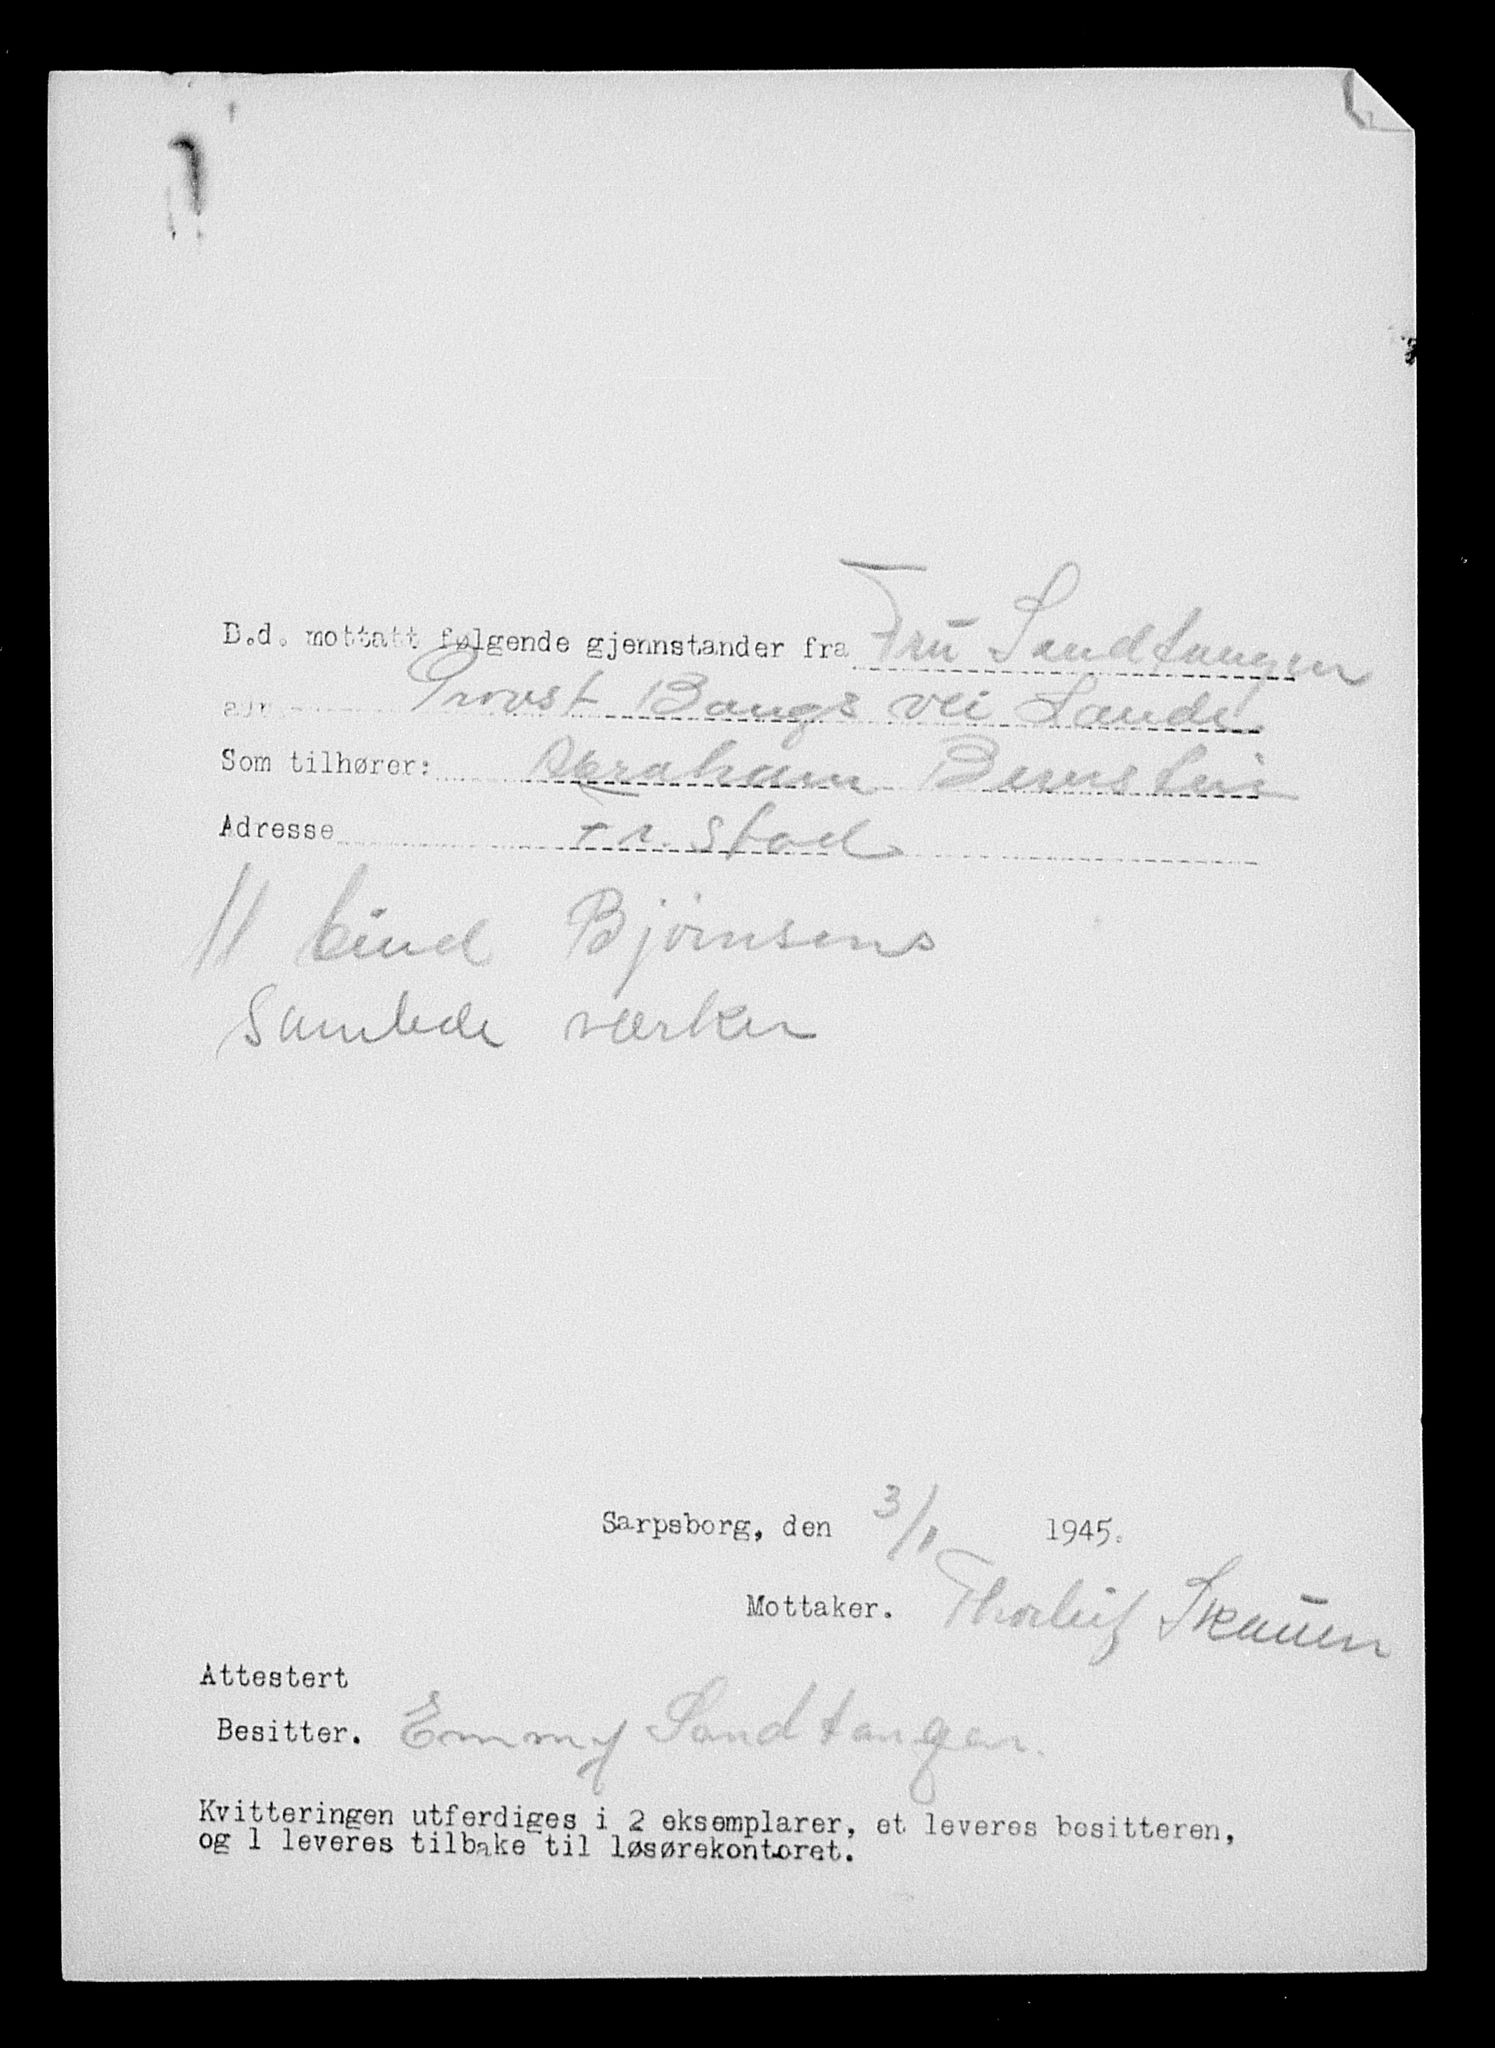 D.d. mottatt følgende gjennstander fra Fru Sandtangen
adr. Provst Bangs vei Lande
Som tilhører: Abraham Bernstein
Adresse Fr. stad
11 bind Bjørnsens
Samlede værker
Sarpsborg, den 3/11 1945.
Mottaker. Thorleif Skauen
Attestert
Besitter. Emmy Sandtangen.
Kvitteringen utferdiges i 2 eksemplarer, et leveres besitteren,
og 1 leveres tilbake til løsørekontoret.